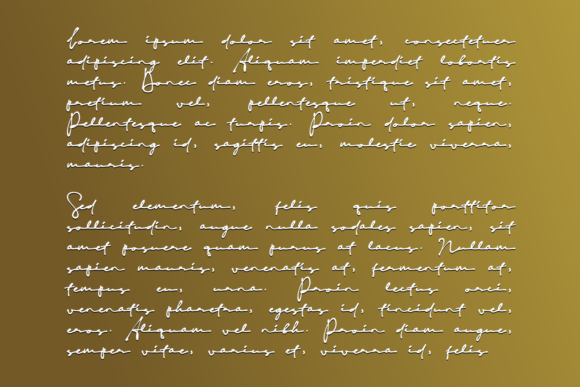 Lorem ipsum dolor sit amet, consectetuer
adipiscing elit. Aliquam imperdiet lobortis
metus. Donec diam eros, tristique sit amet,
pretium vel, pellentesque ut, neque.
Pellentesque ac turpis. Proin dolor sapien,
adipiscing id, sagittis eu, molestie viverra,
mauris.

Sed elementum, felis quis porttitor
sollicitudin, augue nulla sodales sapien, sit
amet posuere quam purus at lacus. Nullam
sapien mauris, venenatis at, fermentum at,
tempus eu, urna. Proin lectus orci,
venenatis pharetra, egestas id, tincidunt vel,
eros. Aliquam vel nibh. Proin diam augue,
semper vitae, varius et, viverra id, felis